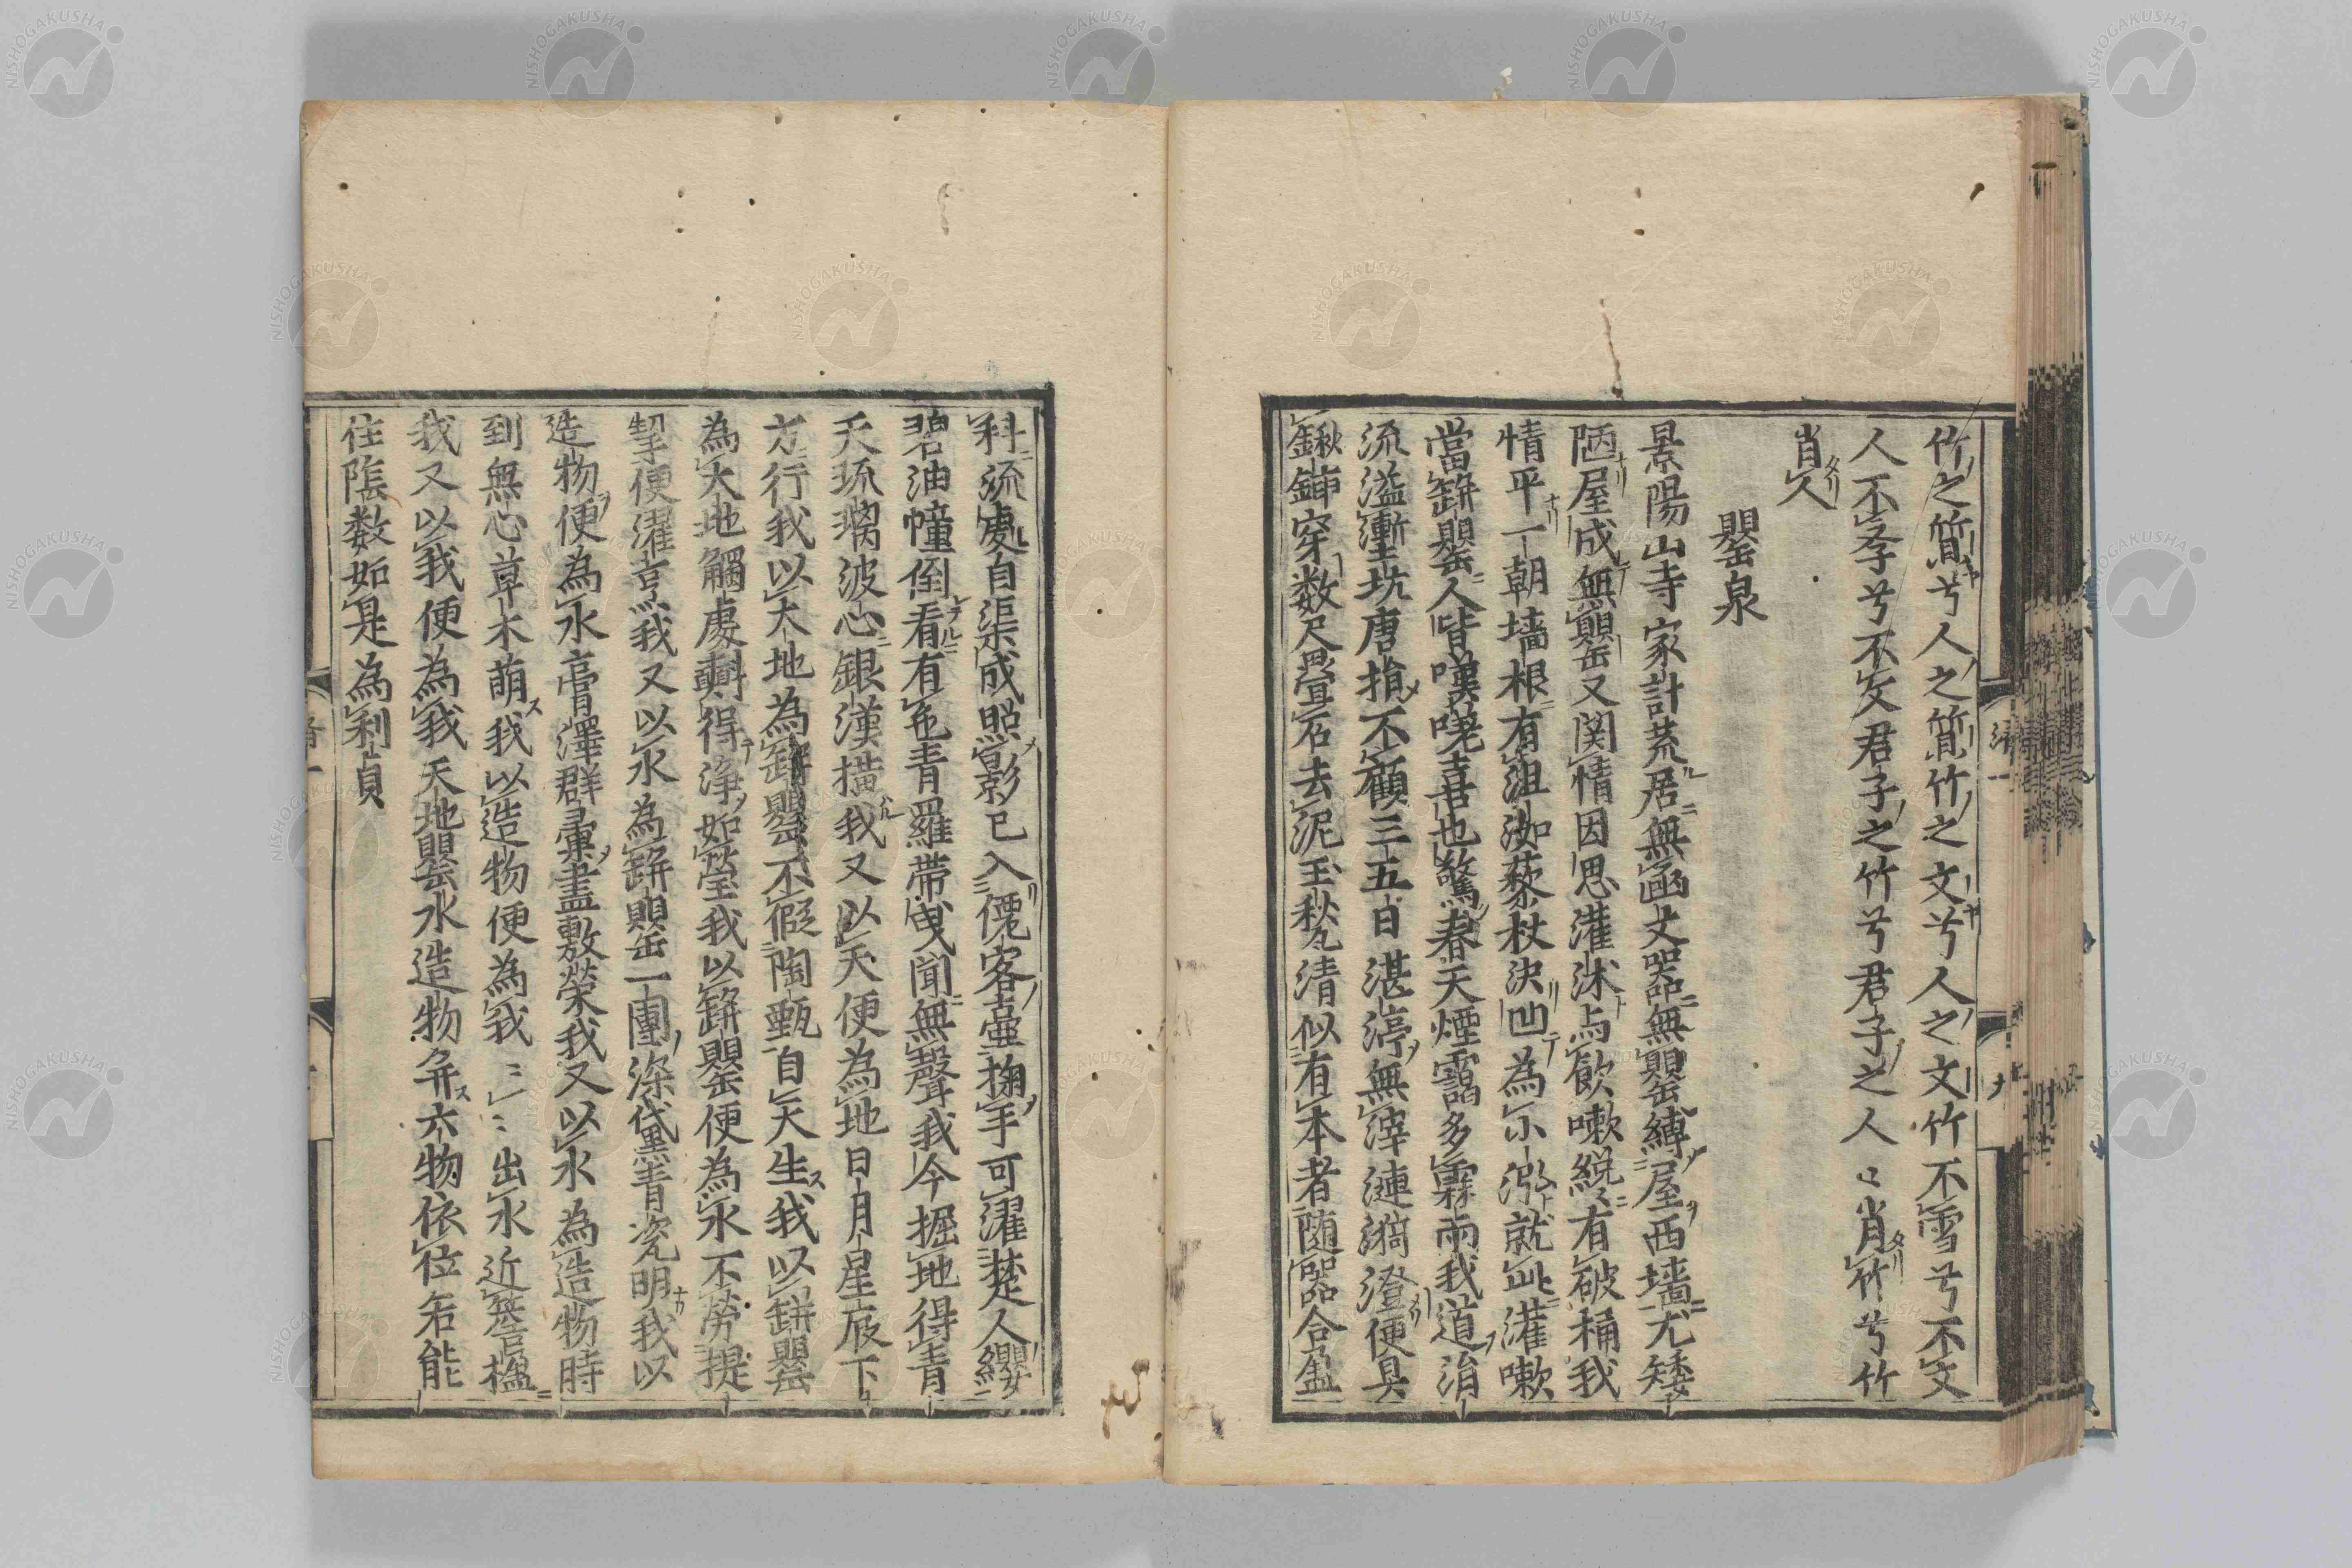 竹之質兮人之質竹之文兮人之文竹不雪兮不文
人不孝兮不文君子之竹兮君子之人〻肖竹兮竹
肖人
罌泉
景陽山寺家計荒居無函丈器無罌缶縛屋西墻尤矮
陋屋成無罌又関情因思灌沐与飲嗽總有破桶我
情平一朝墻根有沮洳藜杖決凹為小泓就此灌嗽
當缾罌人皆嘆嘆喜也驚春天煙靄多霖雨我道涓
流溢塹坑唐捐不顧三五日湛渟無滓漣漪澄便具
鍬鍤穿数尺畳石去泥玉甃清似有本者随器合盈
科流處自渠成照影已入僊客壺掬手可濯楚人纓
碧油幢倒看有色青羅帯曳聞無聲我今掘地得青
天琉璃波心銀漢横我又以天便為地日月星辰下
方行我以大地為缾罌不假陶甄自天生我以缾罌
為大地觸處斟得浄如瑩我以缾罌便為水不勞提
挈便濯烹我又以水為缾罌一團深黛青瓷明我以
造物便為水膏澤群彙盡敷榮我又以水為造物時
到無心草木萌我以造物便為我〻〻出水近簷楹
我又以我便為我天地罌水造物弁六物依位若能
住陰数如是為利貞
NISHOGAKUSHA